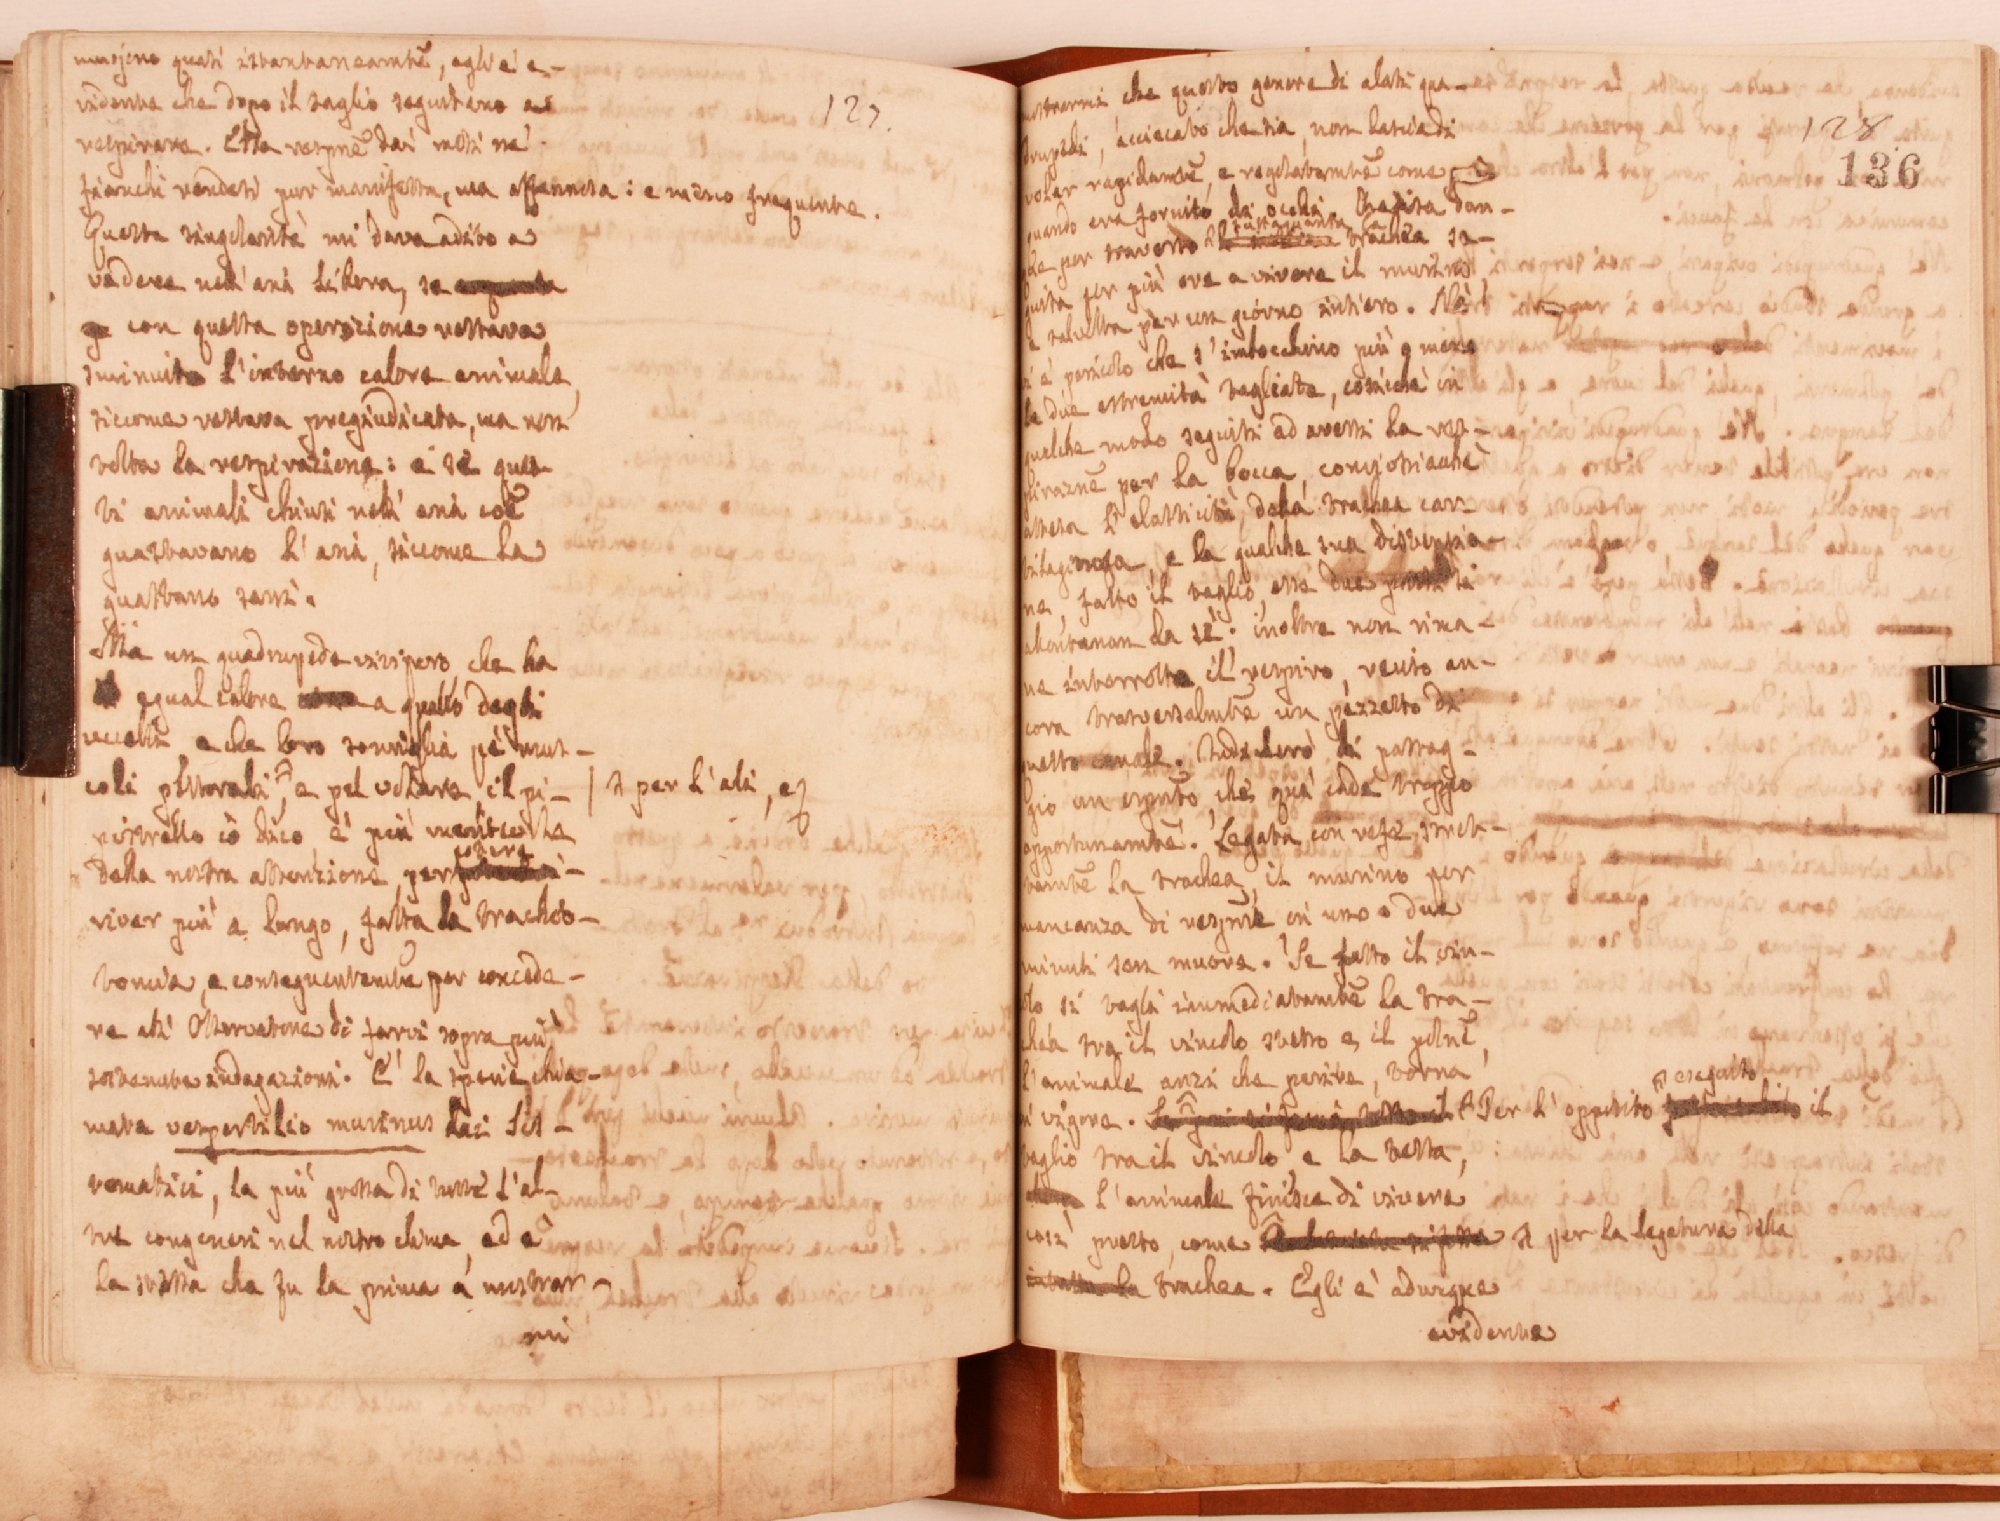 muojono quasi istantaneamẽte, egli è e-
127.
vidente che dopo il taglio seguitano a
respirare. Ella respirne dai moti ne'
fianchi rendesi pur manifesta, ma affannosa: e meno frequente.
Questa singolarità mi dava adito a
vedere nell' aria libera, se
con questa operazione restava
sminuito l'interno calore animale,
siccome restava pregiudicata, ma non
tolta la respirazione: e se ques-
ti animali chiusi nell' aria coẽ
guastavano l' aria, siccome la
guastano sani.
Ma un quadrupede viviparo, che ha
egual calore a quello degli
uccelli, e che loro somiglia pe' mus-
coli pettorali, e pel volare, il pi-
/ # per l' ali, e
pistrello io dico, è più
della nostra attenzione, per potere
viver più a lungo, fatta la tracheo-
tomia, e conseguentemẽte per concede-
re all' Osservatore di farvi sopra più
sostenute indagazioni. E' la specie chia-
mata vespertilio murinus dai Sis-
tematici, la più grossa di tutte l'al-
tre congeneri nel nostro clima, ed è
la stessa che fu la prima a mostrar-
mi
mostrarmi che questo genere di alati qua-
128
136
drupedi, acciecato che sia, non lascia di
volar rapidamẽte, e regolatamẽte come
quando era fornito di occhi. Recisa dun-
que per traverso tutta quanta trachea se-
guita per più ore a vivere il murino
e talvolta per un giorno intiero. Nè
vi è pericolo che s' imbocchino più o meno
le due estremità tagliate, cosicchè in
qualche modo seguiti ad aversi la res-
pirazne per la bocca, conciossiachè
attesa l' elasticità, della trachea car-
tilaginosa, e la qualche sua distensio-
ne, fatto il taglio, esse due parti si
allontanan da sè. Inoltre non rima-
ne interrotto il respiro, reciso an-
cora trasversalmẽte un pezzetto di
questo canale. Indicherò di passag-
gio un esprto, che quì cade troppo
opportunamẽte. Legata con refe stret-
tamẽte la trachea, il murino per
mancanza di respirne in uno o due
minuti sen muore. Se fatto il vin-
colo si tagli immediatamẽte la tra-
chea tra il vincolo stesso e il polmẽ,
l'animale anzi che perire, torna
in vigore. Per l' opposito # eseguito il
taglio tra il vincolo e la testa,
l'animale finisce di vivere
così presto, come # per la legatura della
trachea. Egli è adunque
evidente